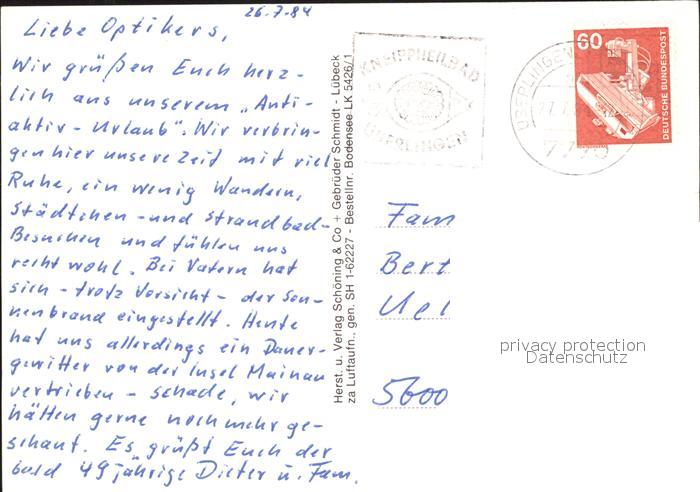 26.7.84
Liebe Optikers,
Wir grüßen Euch herz-
lich aus unserem „Anti-
aktiv-Urlaub". Wir verbrin-
gen hier unsere Zeit mit viel
Ruhe, ein wenig Wandern,
Städtchen- und Strandbad-
Besuchen und fühlen uns
recht wohl. Bei Vatern hat
sich - trotz Vorsicht - der Son-
nenbrand eingestellt. Heute
hat uns allerdings ein Dauer-
gewitter von der Insel Mainau
vertrieben - schade, wir
hätten gerne noch mehr ge-
schaut. Es grüßt Euch der
bald 49jährige Dieter u. Fam.
Herst. u. Verlag Schöning & Co + Gebrüder Schmidt - Lübeck
za Luftaufn., gen. SH 1-62227 - Bestellnr. Bodensee LK 5426/1
KNEIPPHEILBAD
ÜBERLINGEN
ÜBERLINGEN
7770
60
DEUTSCHE BUNDESPOST
Fam
Bert
Uel
5600
privacy protection
Datenschutz